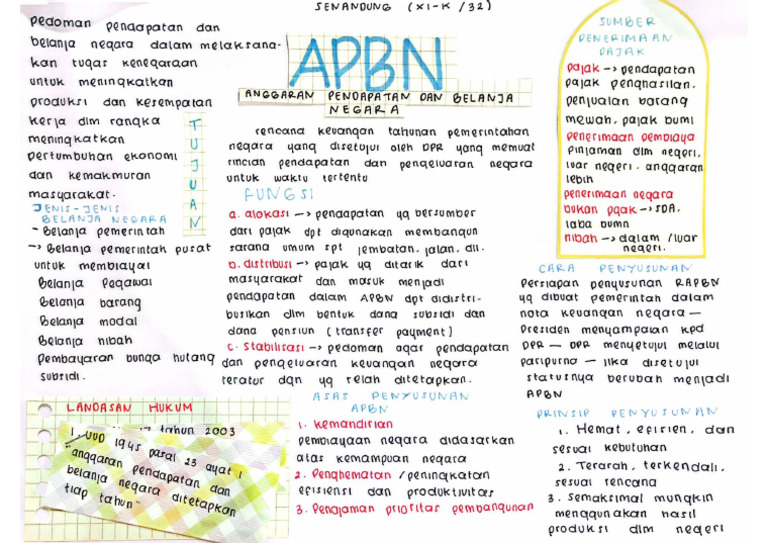 SENANDUNG (XI-K / 32)
APBN
ANGGARAN PENDAPATAN DAN BELANJA
NEGARA
pedoman pendapatan dan
belanja negara dalam melaksana-
kan tugas kenegaraan
untuk meningkatkan
produksi dan kesempatan
kerja dlm rangka
meningkatkan
pertumbuhan ekonomi
dan kemakmuran
masyarakat.
TUJUAN
JENIS-JENIS
BELANJA NEGARA
- Belanja pemerintah
-> Belanja pemerintah pusat
untuk membiayai
Belanja Pegawai
Belanja barang
Belanja modal
Belanja hibah
Pembayaran bunga hutang
subsidi.
LANDASAN HUKUM
17 tahun 2003
1. UUD 1945 pasal 23 ayat 1
anggaran pendapatan dan
belanja negara ditetapkan
tiap tahun"
rencana keuangan tahunan pemerintahan
negara yang disetujui oleh DPR yang memuat
rincian pendapatan dan pengeluaran negara
untuk waktu tertentu
FUNGSI
a. alokasi -> pendapatan yg bersumber
dari pajak dpt digunakan membangun
sarana umum spt jembatan, jalan, dll.
b. distribusi -> pajak yg ditarik dari
masyarakat dan masuk menjadi
pendapatan dalam APBN dpt didistri-
busikan dlm bentuk dana subsidi dan
dana pensiun (transfer payment)
c. stabilisasi -> pedoman agar pendapatan
dan pengeluaran keuangan negara
teratur dgn yg telah ditetapkan.
ASAS PENYUSUNAN
APBN
1. Kemandirian
pembiayaan negara didasarkan
atas kemampuan negara
2. Penghematan / peningkatan
efisiensi dan produktivitas
3. Penajaman prioritas pembangunan
SUMBER
PENERIMAAN
PAJAK
pajak -> pendapatan
pajak penghasilan,
penjualan barang
mewah, pajak bumi
penerimaan pembiaya
Pinjaman dlm negeri,
luar negeri, anggaran
lebih
penerimaan negara
bukan pajak -> SDA,
laba bumn
hibah -> dalam / luar
negeri.
CARA PENYUSUNAN
Persiapan penyusunan RAPBN
yg dibuat pemerintah dalam
nota keuangan negara —
Presiden menyampaikan kpd
DPR — DPR menyetujui melalui
paripurna — jika disetujui
statusnya berubah menjadi
APBN
PRINSIP PENYUSUNAN
1. Hemat, efisien, dan
sesuai kebutuhan
2. Terarah, terkendali,
sesuai rencana
3. Semaksimal mungkin
menggunakan hasil
produksi dlm negeri